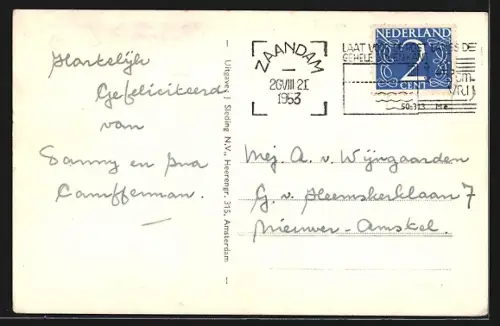 Hartelijk
Gefeliciteerd
van
Danny en Ina
Campfferman.
Uitgave: J. Sleding N.V., Heerengr. 315, Amsterdam
ZAANDAM
20 VIII 21
1953
LAAT
GEHELE
NEDERLAND
2
CENT
Mej A. v. Wijngaarden
G. v. Heemskerklaan 7
Nieuwer-Amstel.